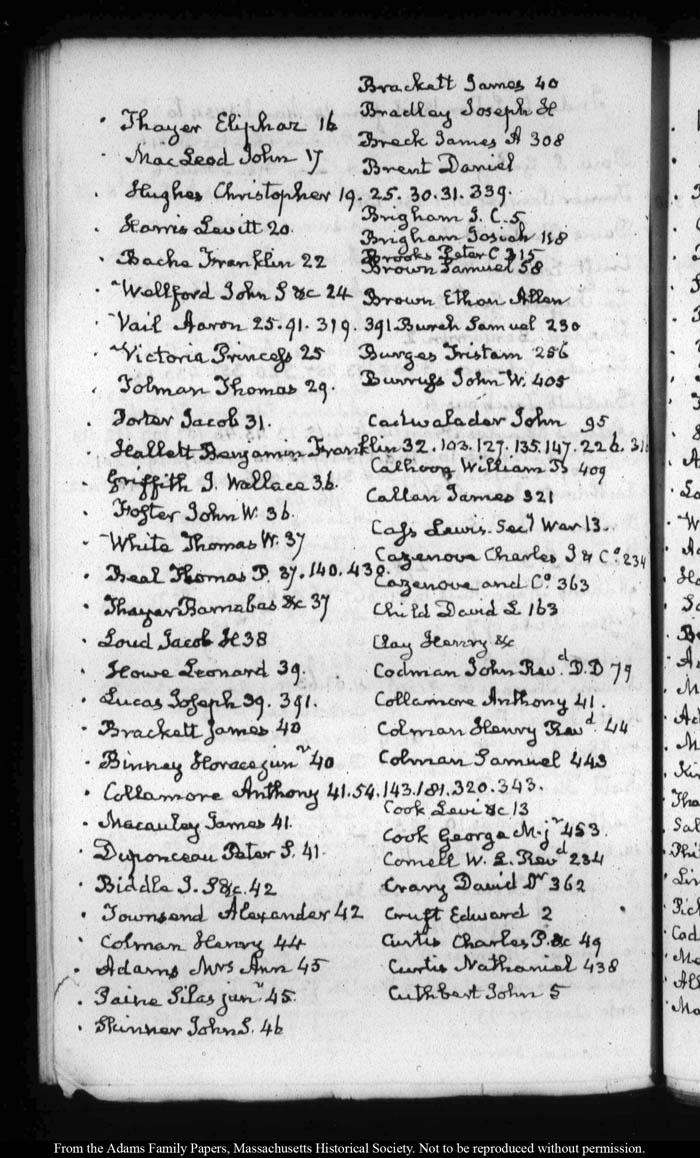 Thayer Eliphaz 16
MacLeod John 17
Hughes Christopher 19. 25. 30. 31. 339.
Harris Levitt 20.
Bache Franklin 22
Wellford John S &c 24
Vail Aaron 25. 91. 319. 391.
Victoria Princess 25
Tolman Thomas 29.
Porter Jacob 31.
Hallett Benjamin Franklin 32. 103. 127. 135. 147. 226. 31
Griffith J. Wallace 36.
Foster John W. 36.
White Thomas W. 37
Beal Thomas P. 37. 140. 438.
Thayer Barnabas &c 37
Loud Jacob H 38
Howe Leonard 39.
Lucas Joseph 39. 391.
Brackett James 40
Binney Horace junr 40
Collamore Anthony 41. 54. 143. 181. 320. 343.
Macauley James 41.
Duponceau Peter S. 41.
Biddle J. S &c. 42
Townsend Alexander 42
Colman Henry 44
Adams Mrs Ann 45
Paine Silas junr 45.
Skinner John S. 46
Brackett James 40
Bradley Joseph H
Breck James A 308
Brent Daniel
Brigham J. C. 5
Brigham Josiah 158
Brooks Peter C 315
Brown Samuel 58
Brown Ethan Allen
Burch Samuel 230
Burges Tristam 256
Burruss John W. 405
Cadwalader John 95
Calhoon William 409
Callan James 321
Cass Lewis. Secy War 13.
Cazenove Charles J & Co. 234
Cazenove and Co 363
Child David L 163
Clay Henry &c
Codman John Revd. D.D 79
Collamore Anthony 41.
Colman Henry Revd. 44
Colman Samuel 443
Cook Levi &c 13
Cook George M. jr 453
Cornell W. L. Revd 234
Crary David Dr 362
Cruft Edward 2
Curtis Charles P. &c 49
Curtis Nathaniel 438
Cuthbert John 5
From the Adams Family Papers, Massachusetts Historical Society. Not to be reproduced without permission.